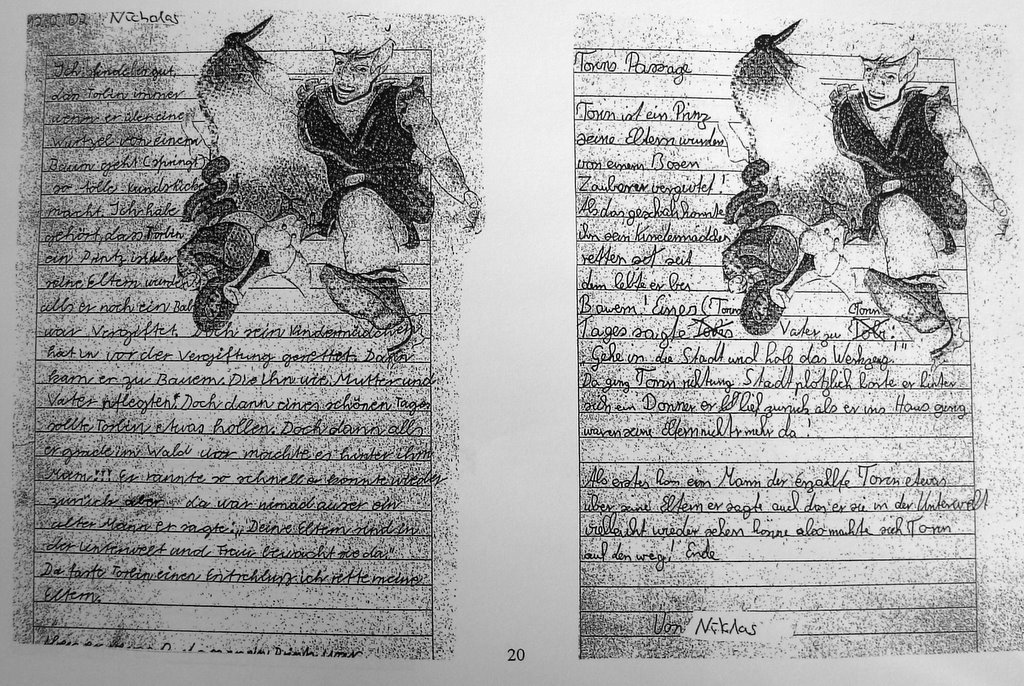 Nicholas
Ich finde er gut
das Torlin immer
wenn er über eine
Wurtzel von einem
Baum geht (springt)
so tolle
macht. Ich habe
gehört das Torlin
ein Printz ist
seine Eltern wurden
alls er noch ein
war Vergiftet. Doch sein Kindermädchen
hat in vor der Vergiftung gerettet. Dann
kam er zu Bauern. Die Ihn wie Mutter und
Vater pflegten. Doch dann eines schönen Tages
sollte Torlin etwas hollen. Doch dann alls
er grade im Wald war machte es hinter ihm
Er rannte so schnell er konnte wieder
zurück aber da war nimad auser ein
alter Mann er sagte: „Deine Eltern sind in
der Unterwelt und Frau bewacht sie da."
Da faste Torlin einen Entschlus ich rette meine
Eltern.
Torins Passage
Torin ist ein Prinz
seine Eltern wurden
von einem Bösen
Zauberer vergiftet!
Als das geschah konnte
In sein Kindermädchen
retten
dem lebte er bei
Bauern! Eines (Torin
Tages sagte Vater zu Torin:
Gehe in die Stadt und hole das Werkzeug!"
Da ging Torin richtung Stadt plötzlich hörte er hinter
sich ein Donner er lief zurück als er ins Haus ging
waren seine Eltern nicht mehr da!
Als erstes kam ein Mann der erzällte Torin etwas
über seine Eltern er sagte auch das er sie in der Unterwelt
vielleicht wieder sehen könne also machte sich Torin
auf den weg! Ende
Von Niklas
20